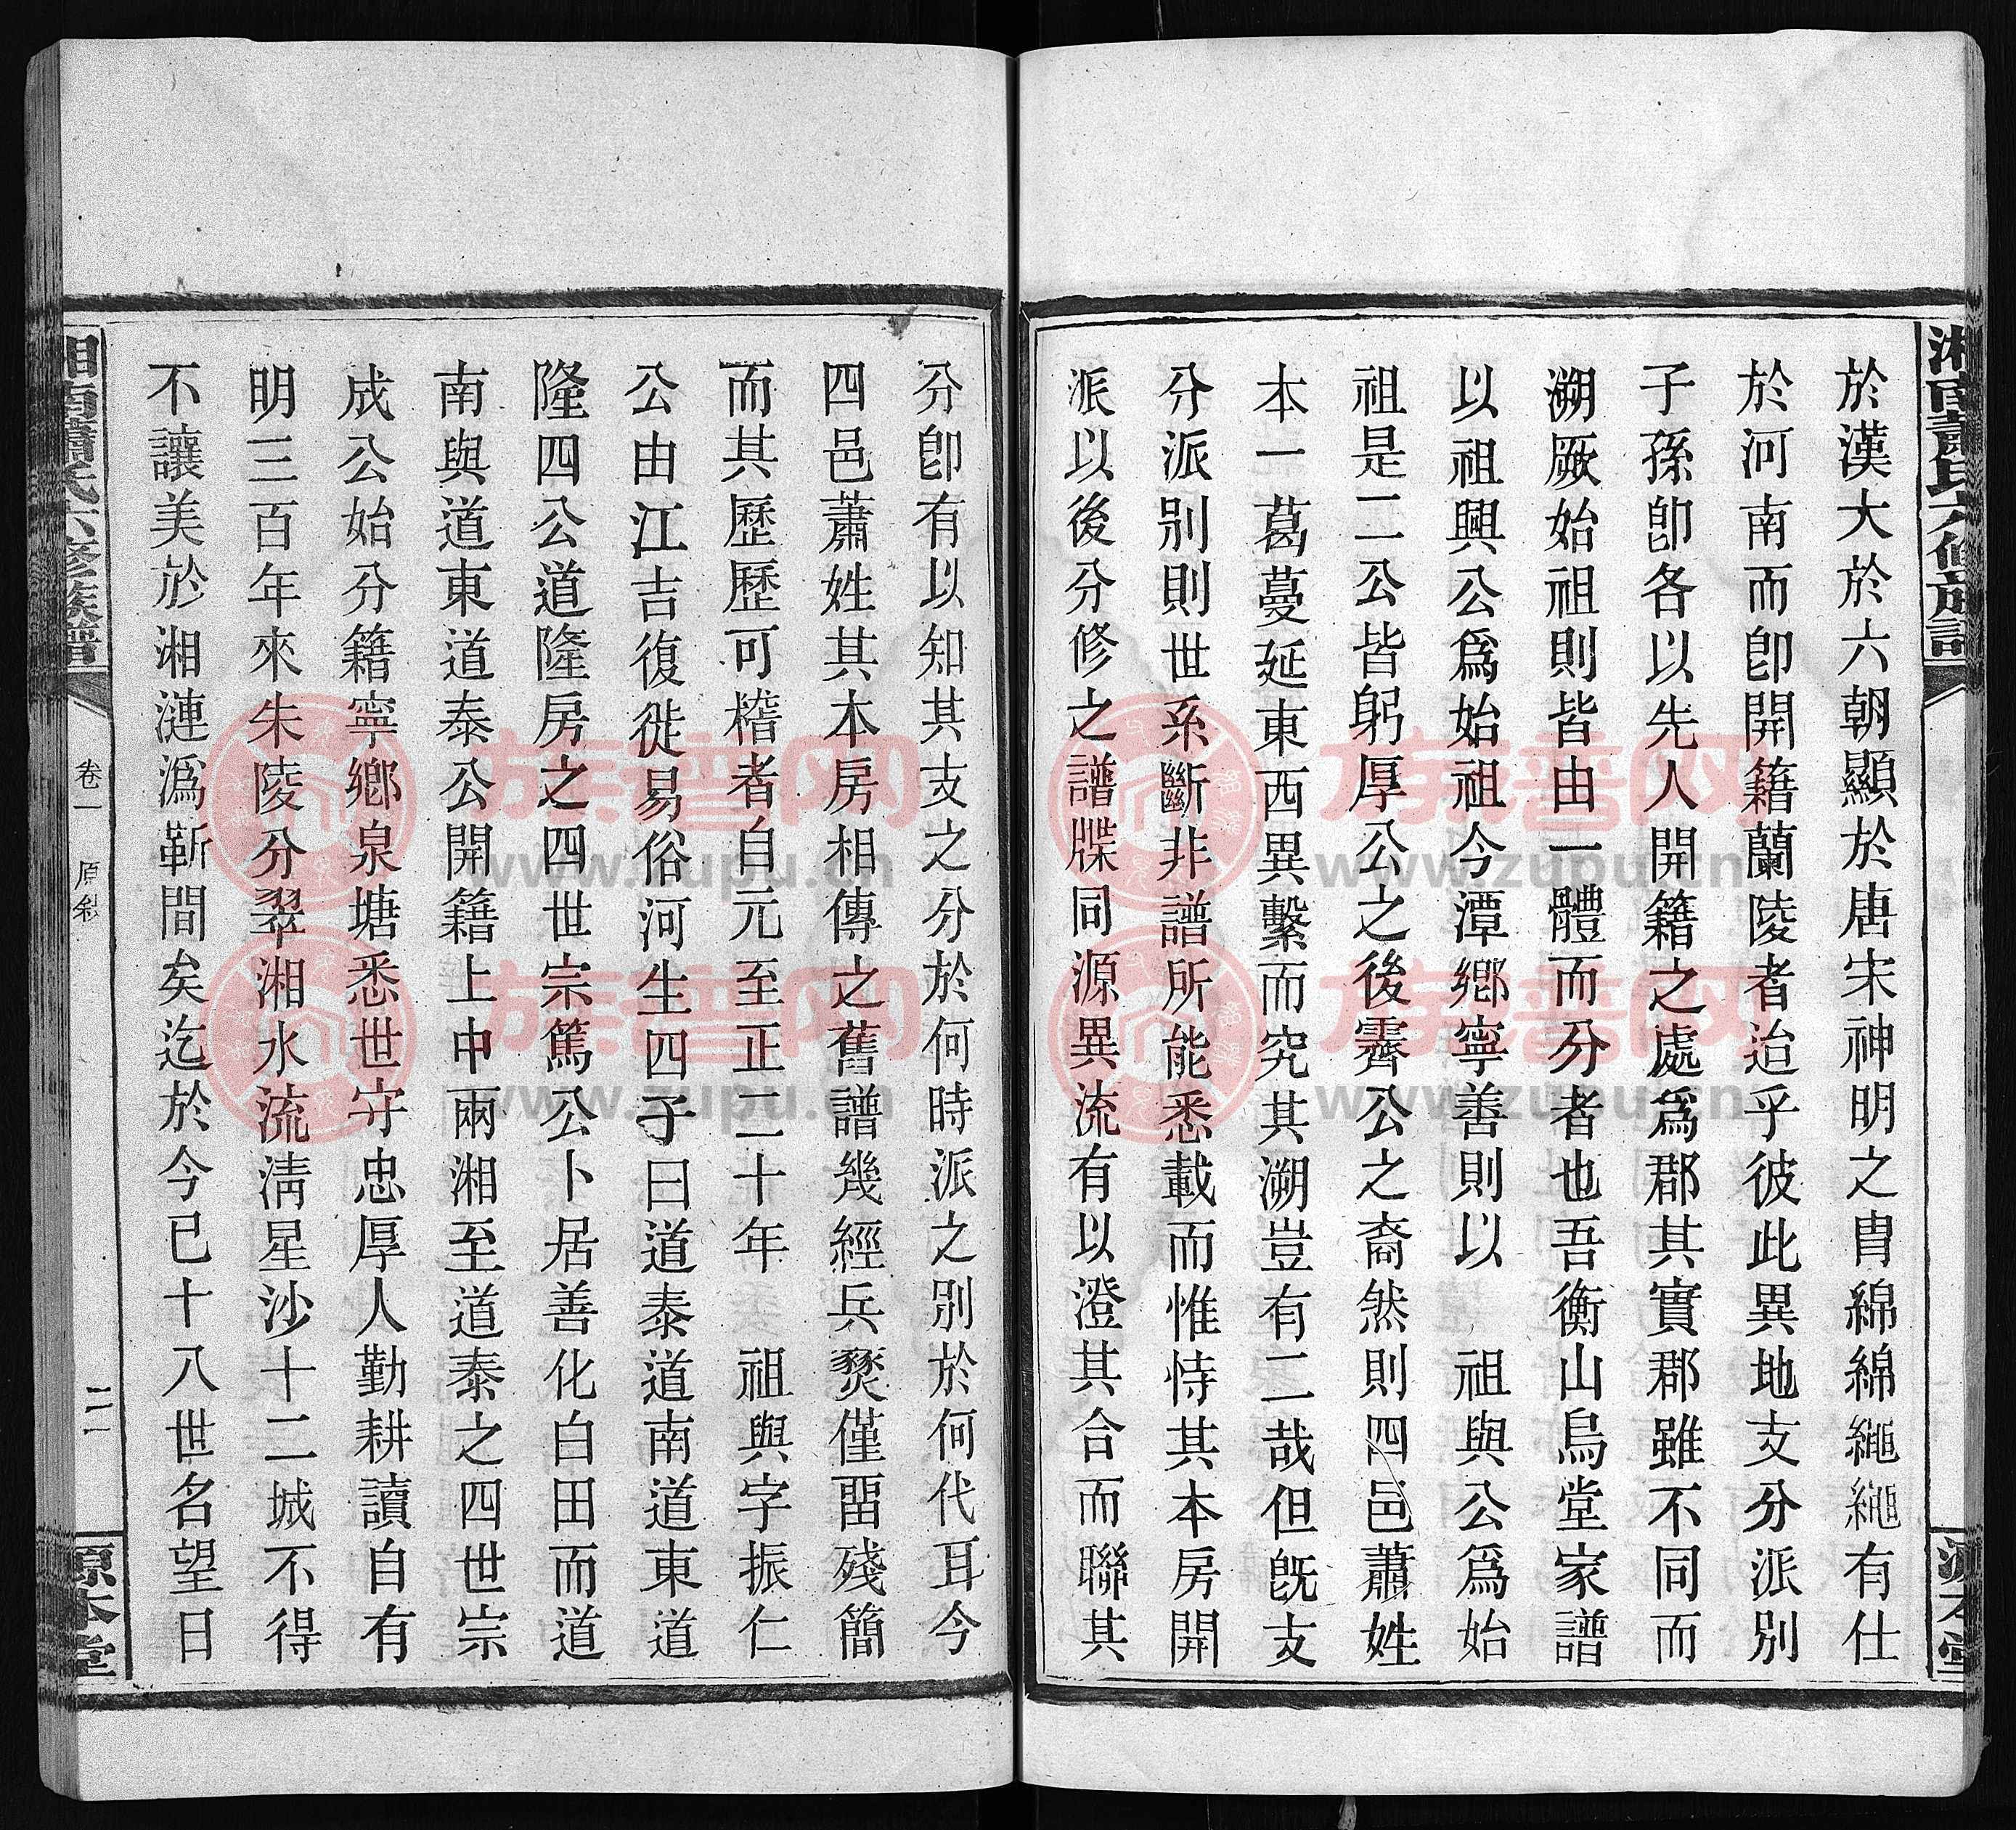 於漢大於六朝顯於唐宋神明之胄綿綿繩繩有仕
於河南而卽開籍蘭陵者迨乎彼此異地支分派別
子孫卽各以先人開籍之處爲郡其實郡雖不同而
溯厥始祖則皆由一體而分者也吾衡山烏堂家譜
以祖興公爲始祖今潭鄉寧善則以 祖與公爲始
祖是二公皆躬厚公之後霽公之裔然則四邑蕭姓
本一葛蔓延東西異繫而究其溯豈有二哉但旣支
分派别則世系斷非譜所能悉載而惟恃其本房開
派以後分修之譜牒同源異流有以澄其合而聯其
分卽有以知其支之分於何時派之別於何代耳今
四邑蕭姓其本房相傳之舊譜幾經兵燹僅畱殘簡
而其歷歷可稽者自元至正二十年 祖與字振仁
公由江吉復徙易俗河生四子曰道泰道南道東道
隆四公道隆房之四世宗篤公卜居善化白田而道
南與道東道泰公開籍上中兩湘至道泰之四世宗
成公始分籍寧鄉泉塘悉世守忠厚人勤耕讀自有
明三百年來朱陵分翠湘水流淸星沙十二城不得
不讓美於湘漣潙靳間矣迄於今已十八世名望日
湘南蕭氏六修族譜
卷一
原敘
二
源本堂